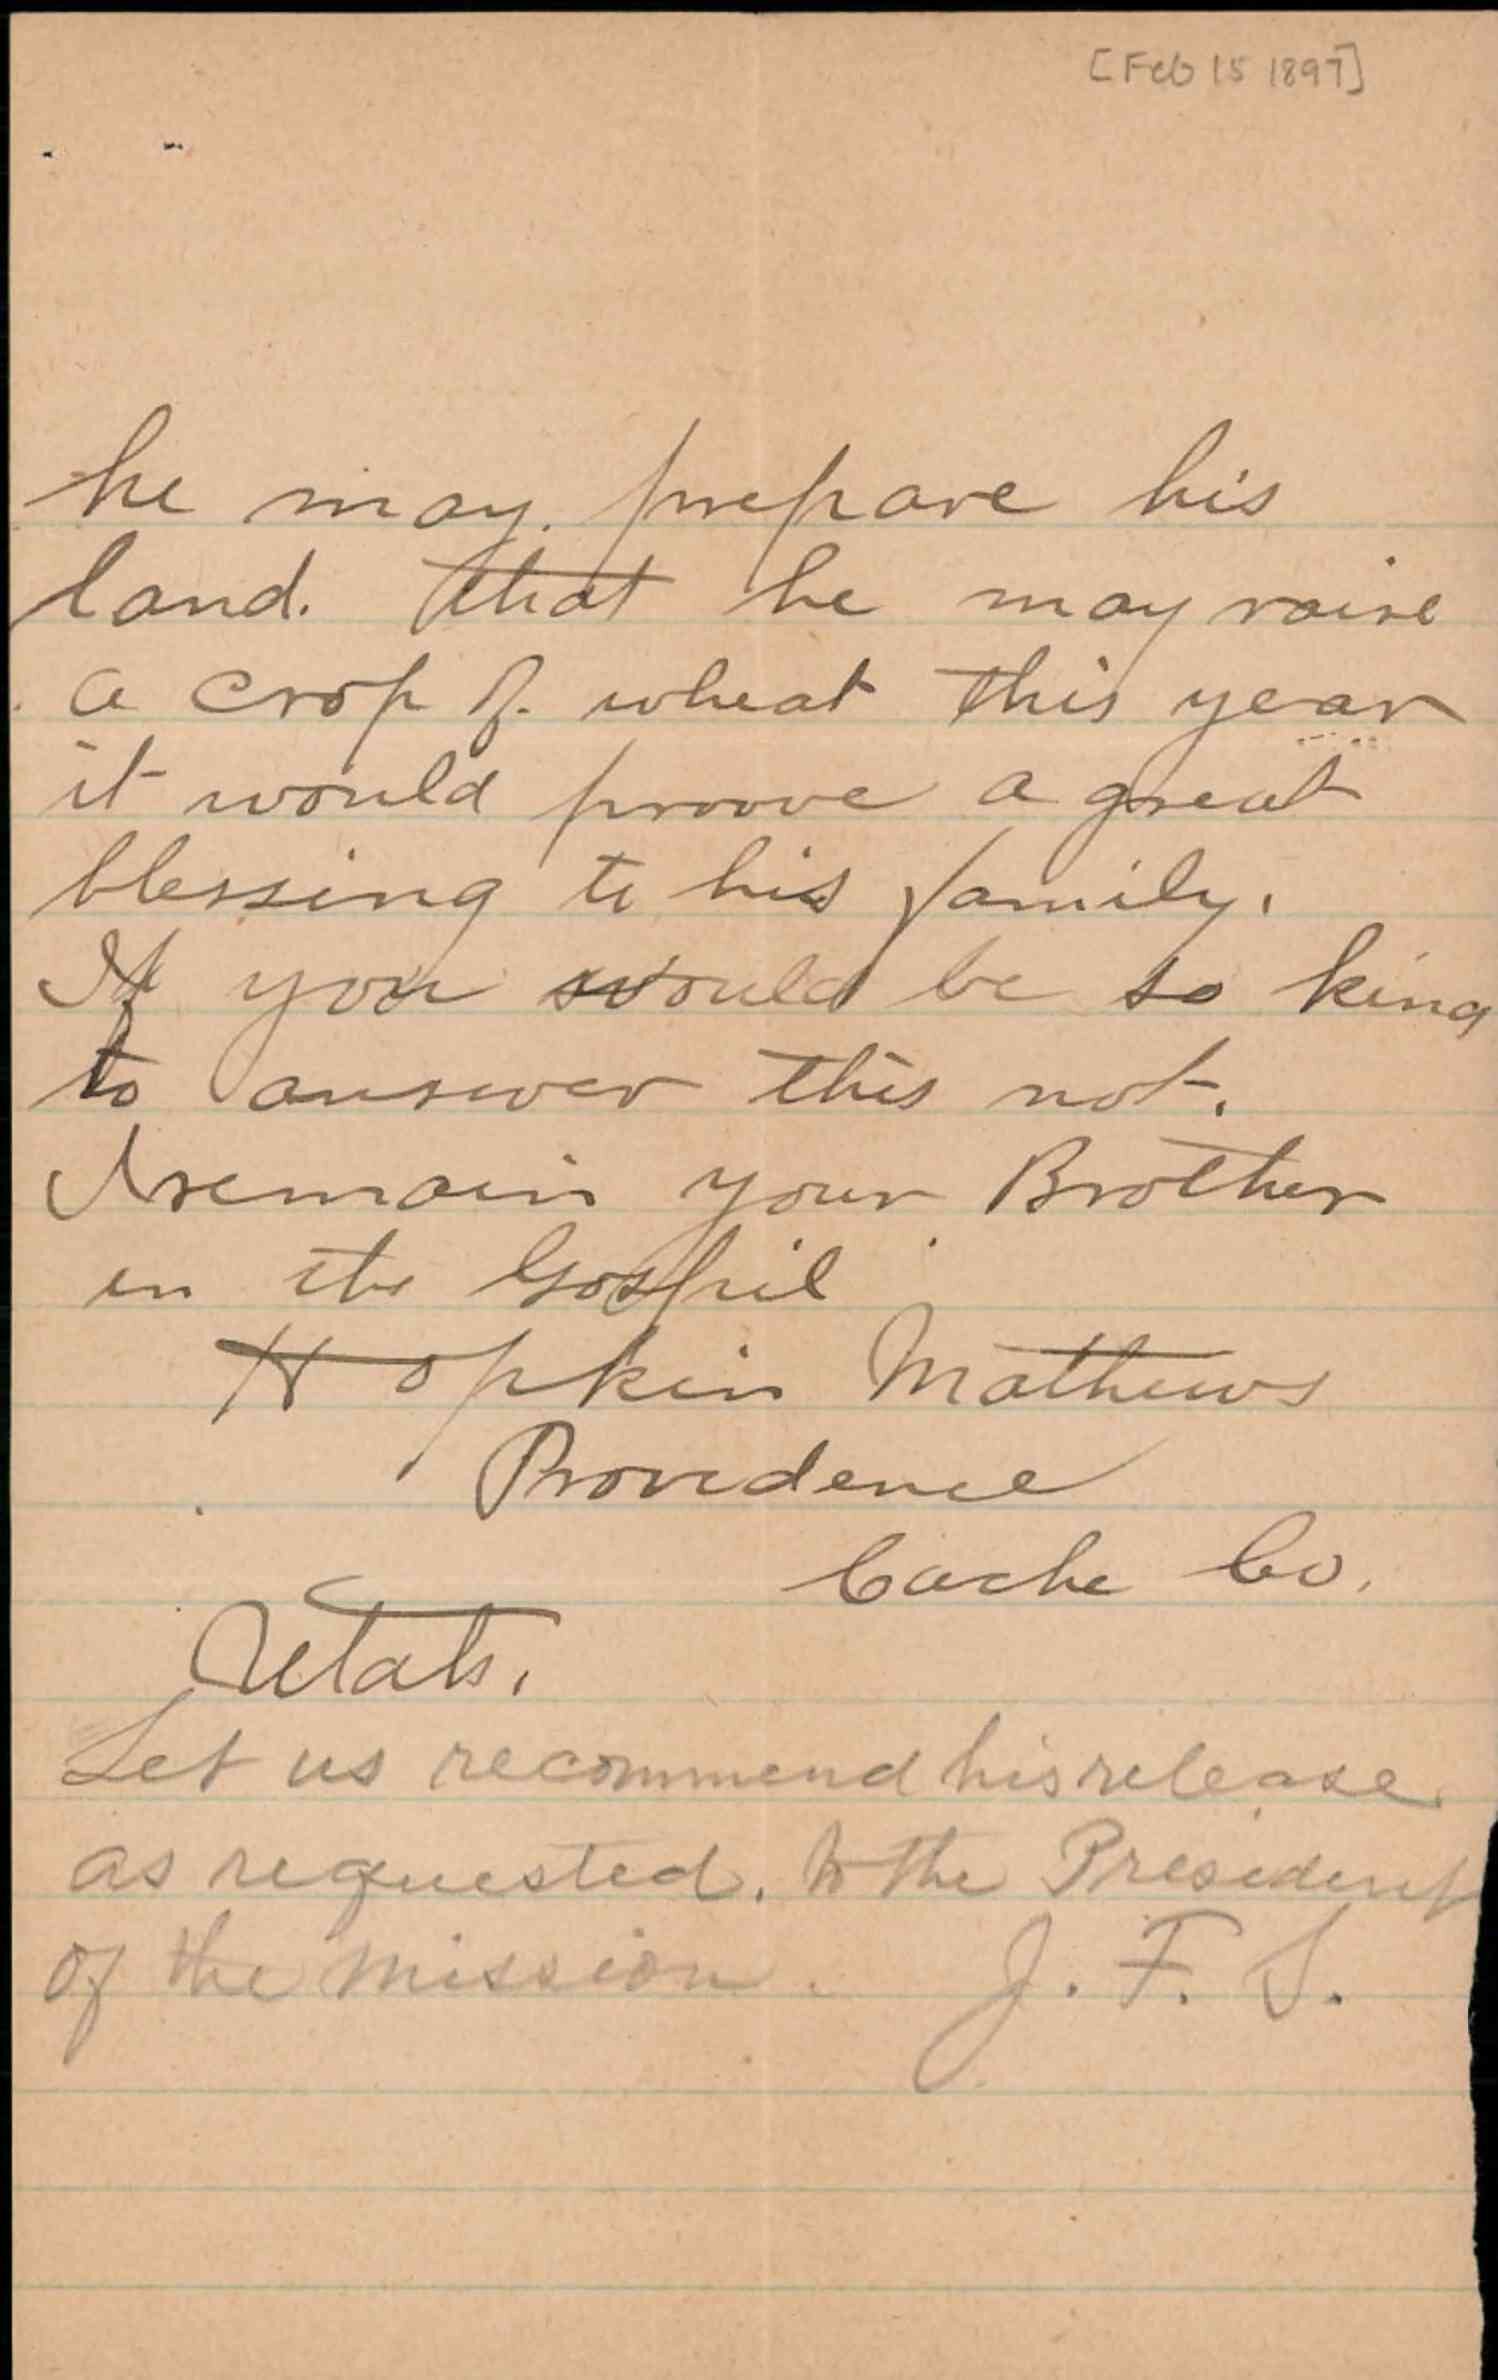 [Feb 15 1897]
he may. prepare his
land. that he may raise
a crop of. wheat this year
it would proove a great
blessing to his family.
If you would be so kind
to answer this not.
I remain your Brother
in the Gospil
Hopkin Mathews
Providence
Cache Co.
Utah.
Let us recommend his release
as requested, to the President
of the mission. J. F. S.